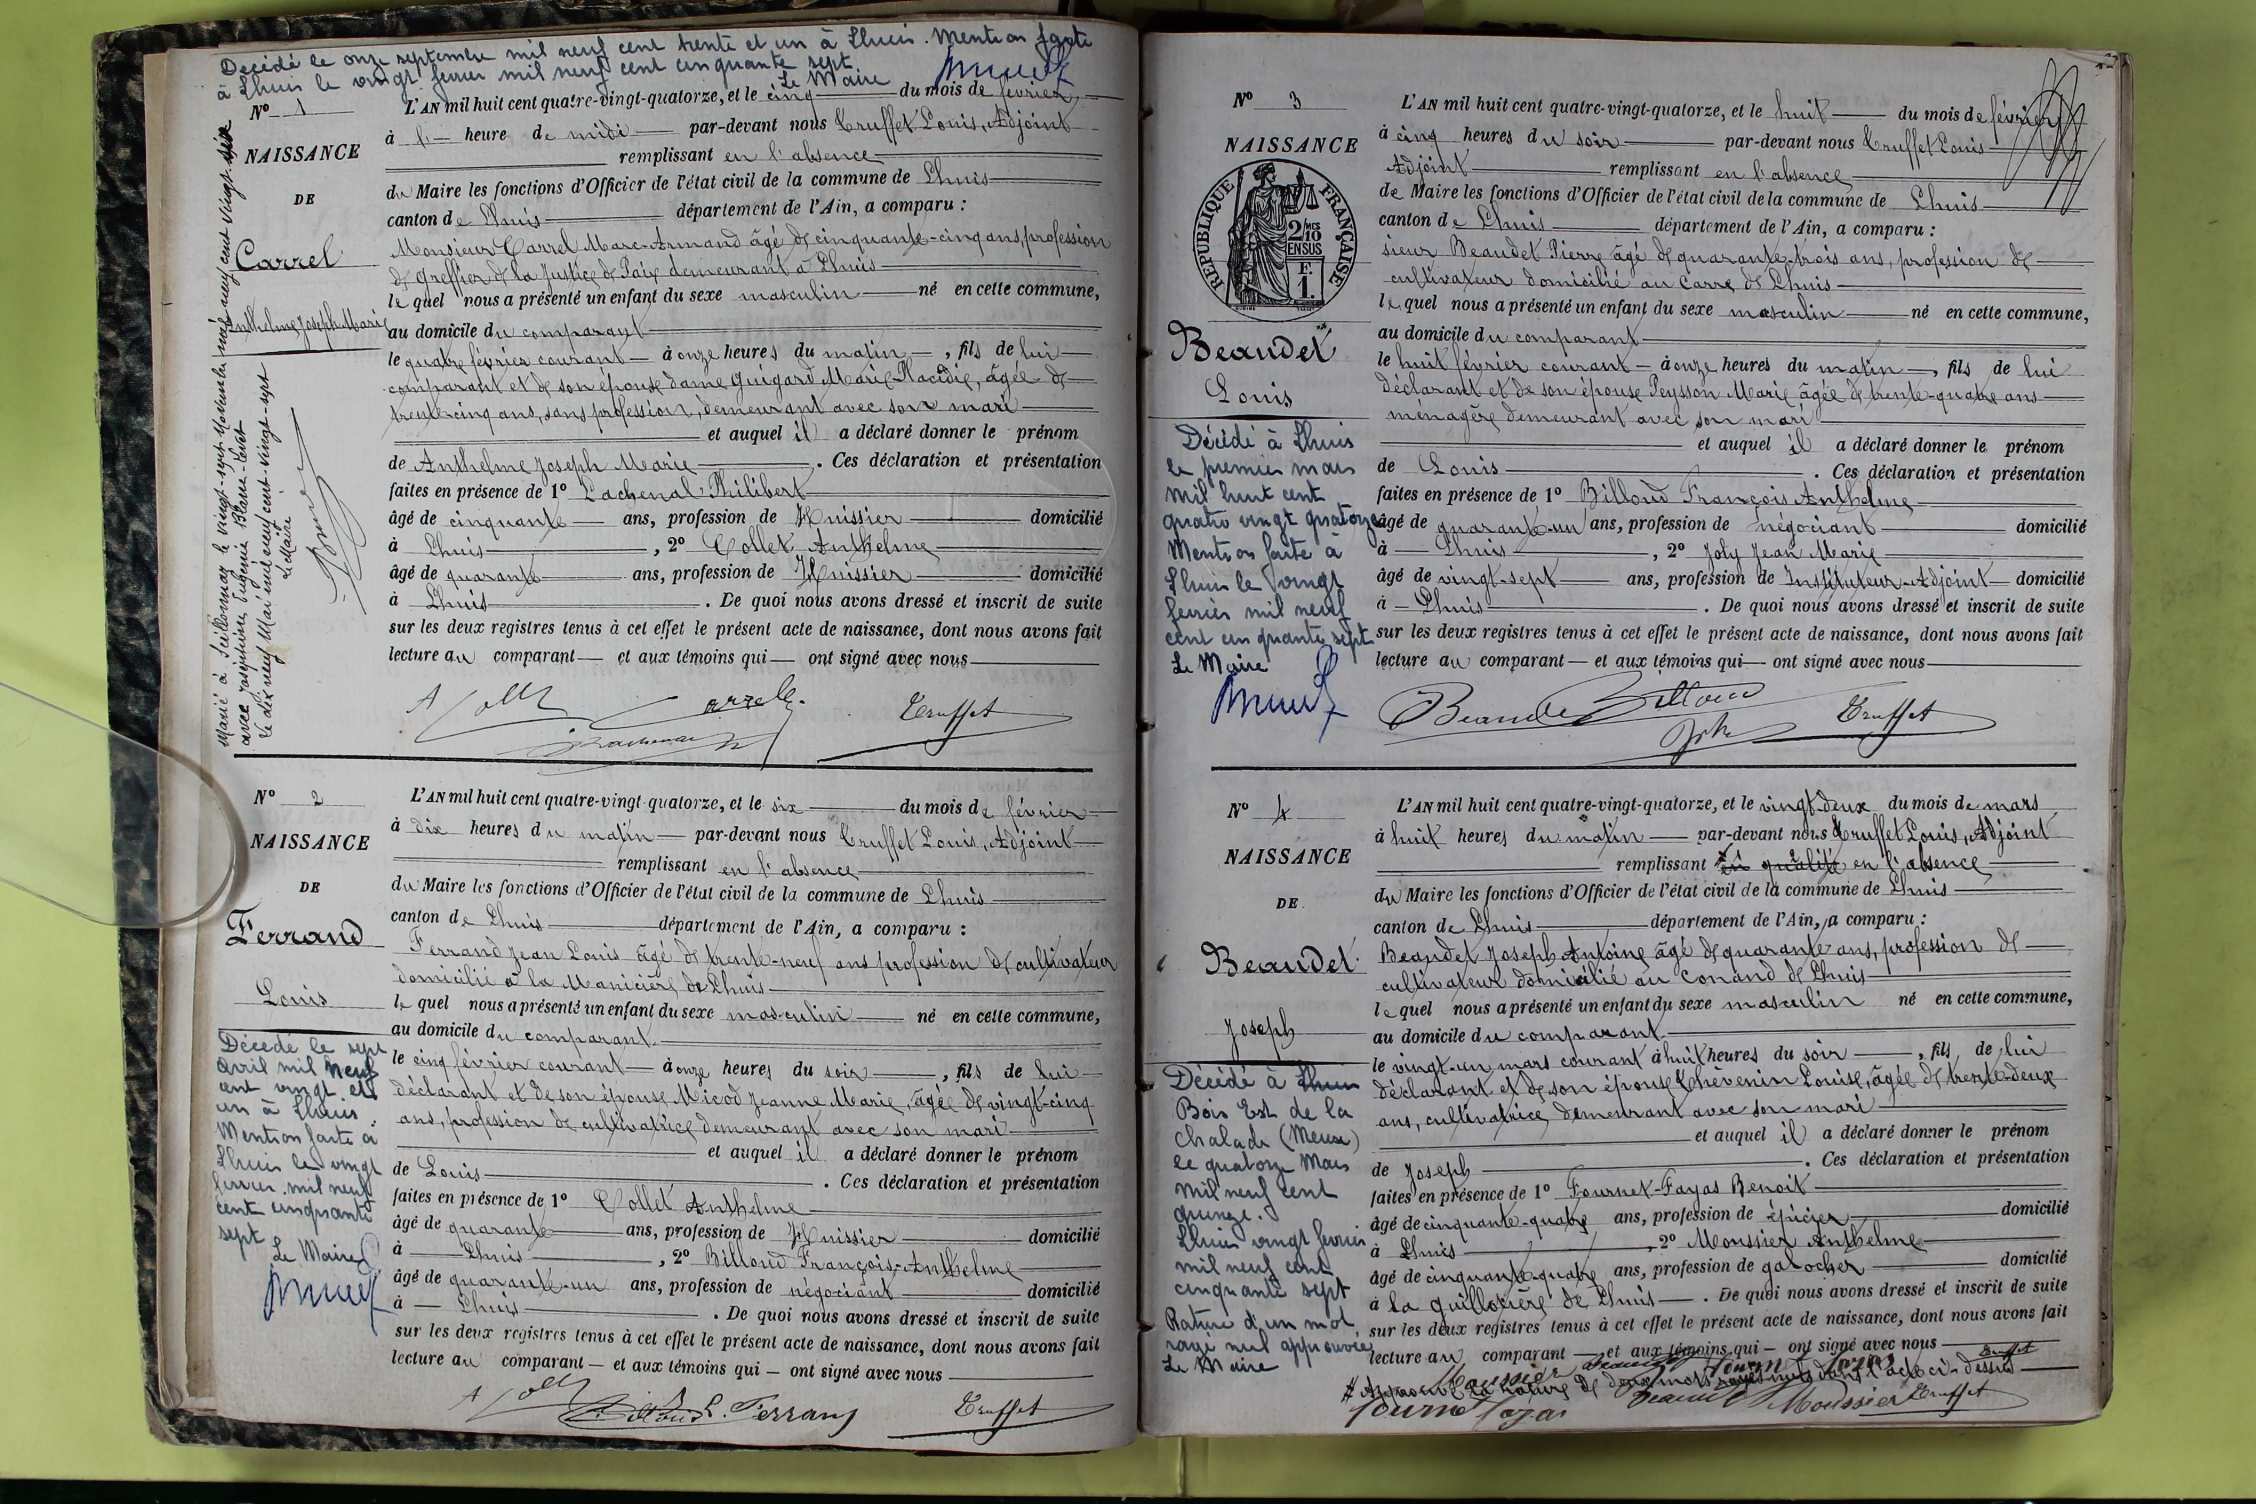 Décédé le onze septembre mil neuf cent trente et un à Lhuis. Mention faite
à Lhuis le vingt fevrier mil neuf cent cinquante sept
Le Maire
N° 1
NAISSANCE
DE
Carrel
Anthelme Joseph Marie
Marié à Seillonnaz le vingt-sept Novembre mil neuf cent vingt-six
avec Joséphine Eugénie Blanc
Le dix neuf Mai mil neuf cent vingt-sept
Le Maire
L'AN mil huit cent quatre-vingt-quatorze, et le cinq du mois de février
à heure de midi par-devant nous Truffet Louis, Adjoint
remplissant en l'absence
du Maire les fonctions d'Officier de l'état civil de la commune de Lhuis
canton de Lhuis département de l'Ain, a comparu :
Monsieur Carrel Marc-Armand âgé de cinquante-cinq ans, profession
de greffier de la Justice de Paix demeurant à Lhuis
le quel nous a présenté un enfant du sexe masculin né en cette commune,
au domicile du comparant
le quatre février courant à onze heures du matin, fils de lui
comparant et de son épouse dame Guigard Marie Placidie, âgée de
trente cinq ans, sans profession, demeurant avec son mari
et auquel il a déclaré donner le prénom
de Anthelme Joseph Marie. Ces déclaration et présentation
faites en présence de 1° Lachenal Philibert
âgé de cinquante ans, profession de Huissier domicilié
à Lhuis, 2° Collet Anthelme
âgé de quarante ans, profession de Huissier domicilié
à Lhuis. De quoi nous avons dressé et inscrit de suite
sur les deux registres tenus à cet effet le présent acte de naissance, dont nous avons fait
lecture au comparant et aux témoins qui ont signé avec nous
A Collet Carrel Truffet
Lachenal
N° 2
NAISSANCE
DE
Ferrand
Louis
Décédé le sept
avril mil neuf
cent vingt et
un à Lhuis.
Mention faite à
Lhuis le vingt
fevrier mil neuf
cent cinquante
sept
Le Maire
L'AN mil huit cent quatre-vingt-quatorze, et le six du mois de février
à dix heures du matin par-devant nous Truffet Louis, Adjoint
remplissant en l'absence
du Maire les fonctions d'Officier de l'état civil de la commune de Lhuis
canton de Lhuis département de l'Ain, a comparu :
Ferrand Jean Louis âgé de trente-neuf ans profession de cultivateur
domicilié à la Manicière de Lhuis
le quel nous a présenté un enfant du sexe masculin né en cette commune,
au domicile du comparant
le cinq février courant à onze heures du soir, fils de lui
déclarant et de son épouse Micod Jeanne Marie, âgée de vingt-cinq
ans, profession de cultivatrice demeurant avec son mari
et auquel il a déclaré donner le prénom
de Louis. Ces déclaration et présentation
faites en présence de 1° Collet Anthelme
âgé de quarante ans, profession de Huissier domicilié
à Lhuis, 2° Billoud François-Anthelme
âgé de quarante-un ans, profession de négociant domicilié
à Lhuis. De quoi nous avons dressé et inscrit de suite
sur les deux registres tenus à cet effet le présent acte de naissance, dont nous avons fait
lecture au comparant et aux témoins qui ont signé avec nous
A Collet Billoud L. Ferrand Truffet
N° 3
NAISSANCE
RÉPUBLIQUE FRANÇAISE
2/10 MES
EN SUS
F.
1.
Beaudet
Louis
Décédé à Lhuis
le premier mars
mil huit cent
quatre vingt quatorze
Mention faite à
Lhuis le vingt
fevrier mil neuf
cent cinquante sept
Le Maire
L'AN mil huit cent quatre-vingt-quatorze, et le huit du mois de février
à cinq heures du soir par-devant nous Truffet Louis
Adjoint remplissant en l'absence
de Maire les fonctions d'Officier de l'état civil de la commune de Lhuis
canton de Lhuis département de l'Ain, a comparu :
sieur Beaudet Pierre âgé de quarante-trois ans, profession de
cultivateur domicilié au Carre de Lhuis
le quel nous a présenté un enfant du sexe masculin né en cette commune,
au domicile du comparant
le huit février courant à onze heures du matin, fils de lui
déclarant et de son épouse Peysson Marie âgée de trente-quatre ans
ménagère demeurant avec son mari
et auquel il a déclaré donner le prénom
de Louis. Ces déclaration et présentation
faites en présence de 1° Billoud François Anthelme
âgé de quarante-un ans, profession de négociant domicilié
à Lhuis, 2° Joly Jean Marie
âgé de vingt-sept ans, profession de Instituteur-Adjoint domicilié
à Lhuis. De quoi nous avons dressé et inscrit de suite
sur les deux registres tenus à cet effet le présent acte de naissance, dont nous avons fait
lecture au comparant et aux témoins qui ont signé avec nous
Beaudet Billoud Truffet
Joly
N° 4
NAISSANCE
DE
Beaudet
Joseph
Décédé à Lhuis
Bois Est de la
Chalade (Meuse)
le quatorze Mars
mil neuf cent
quinze.
Lhuis vingt fevrier
mil neuf cent
cinquante sept
Rature d'un mot
rayé nul approuvée
Le Maire
L'AN mil huit cent quatre-vingt-quatorze, et le vingt-deux du mois de mars
à huit heures du matin par-devant nous Truffet Louis, Adjoint
remplissant en qualité en l'absence
du Maire les fonctions d'Officier de l'état civil de la commune de Lhuis
canton de Lhuis département de l'Ain, a comparu :
Beaudet Joseph Antoine âgé de quarante ans, profession de
cultivateur domicilié au Conand de Lhuis
le quel nous a présenté un enfant du sexe masculin né en cette commune,
au domicile du comparant
le vingt-un mars courant à huit heures du soir, fils de lui
déclarant et de son épouse Thévenin Louise, âgée de trente-deux
ans, cultivatrice demeurant avec son mari
et auquel il a déclaré donner le prénom
de Joseph. Ces déclaration et présentation
faites en présence de 1° Fournet-Fayas Benoit
âgé de cinquante-quatre ans, profession de épicier domicilié
à Lhuis, 2° Moussier Anthelme
âgé de cinquante-quatre ans, profession de galocher domicilié
à la guillotière de Lhuis. De quoi nous avons dressé et inscrit de suite
sur les deux registres tenus à cet effet le présent acte de naissance, dont nous avons fait
lecture au comparant et aux témoins qui ont signé avec nous
Moussier Beaudet Fournet Fayas Truffet
Approuvé la rature de deux mots rayés nuls dans l'acte ci-dessus
Fournet Fayas Beaudet Moussier Truffet